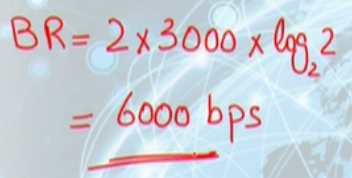 BR = 2 x 3000 x log₂ 2
= 6000 bps